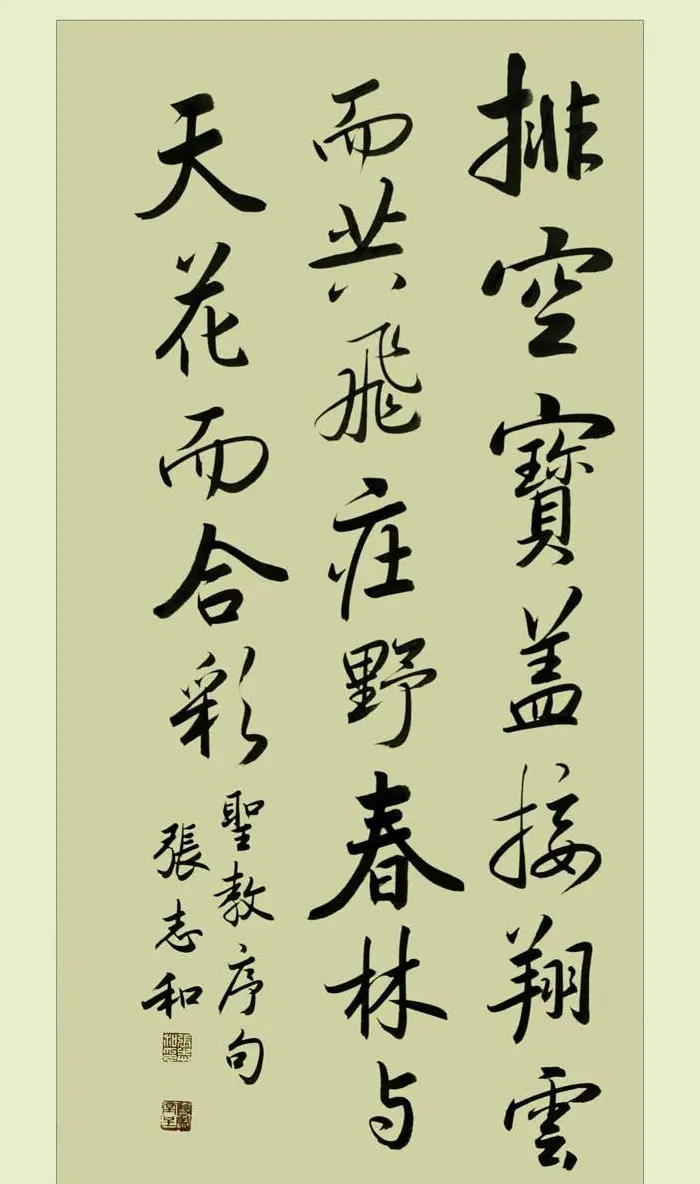 排空寶盖接翔雲
而共飛庄野春林与
天花而合彩
聖教序句
張志和